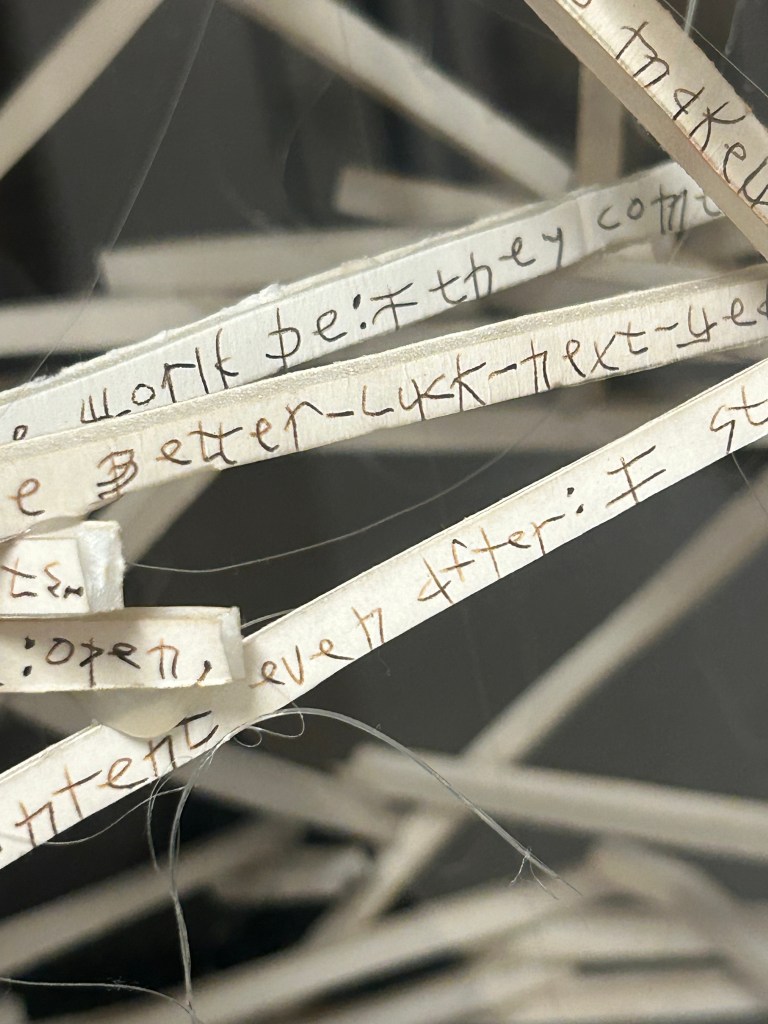 makeu
work be:I they comt
e Better-Luck-next-yea
ts
:open,
ntent even after: I st